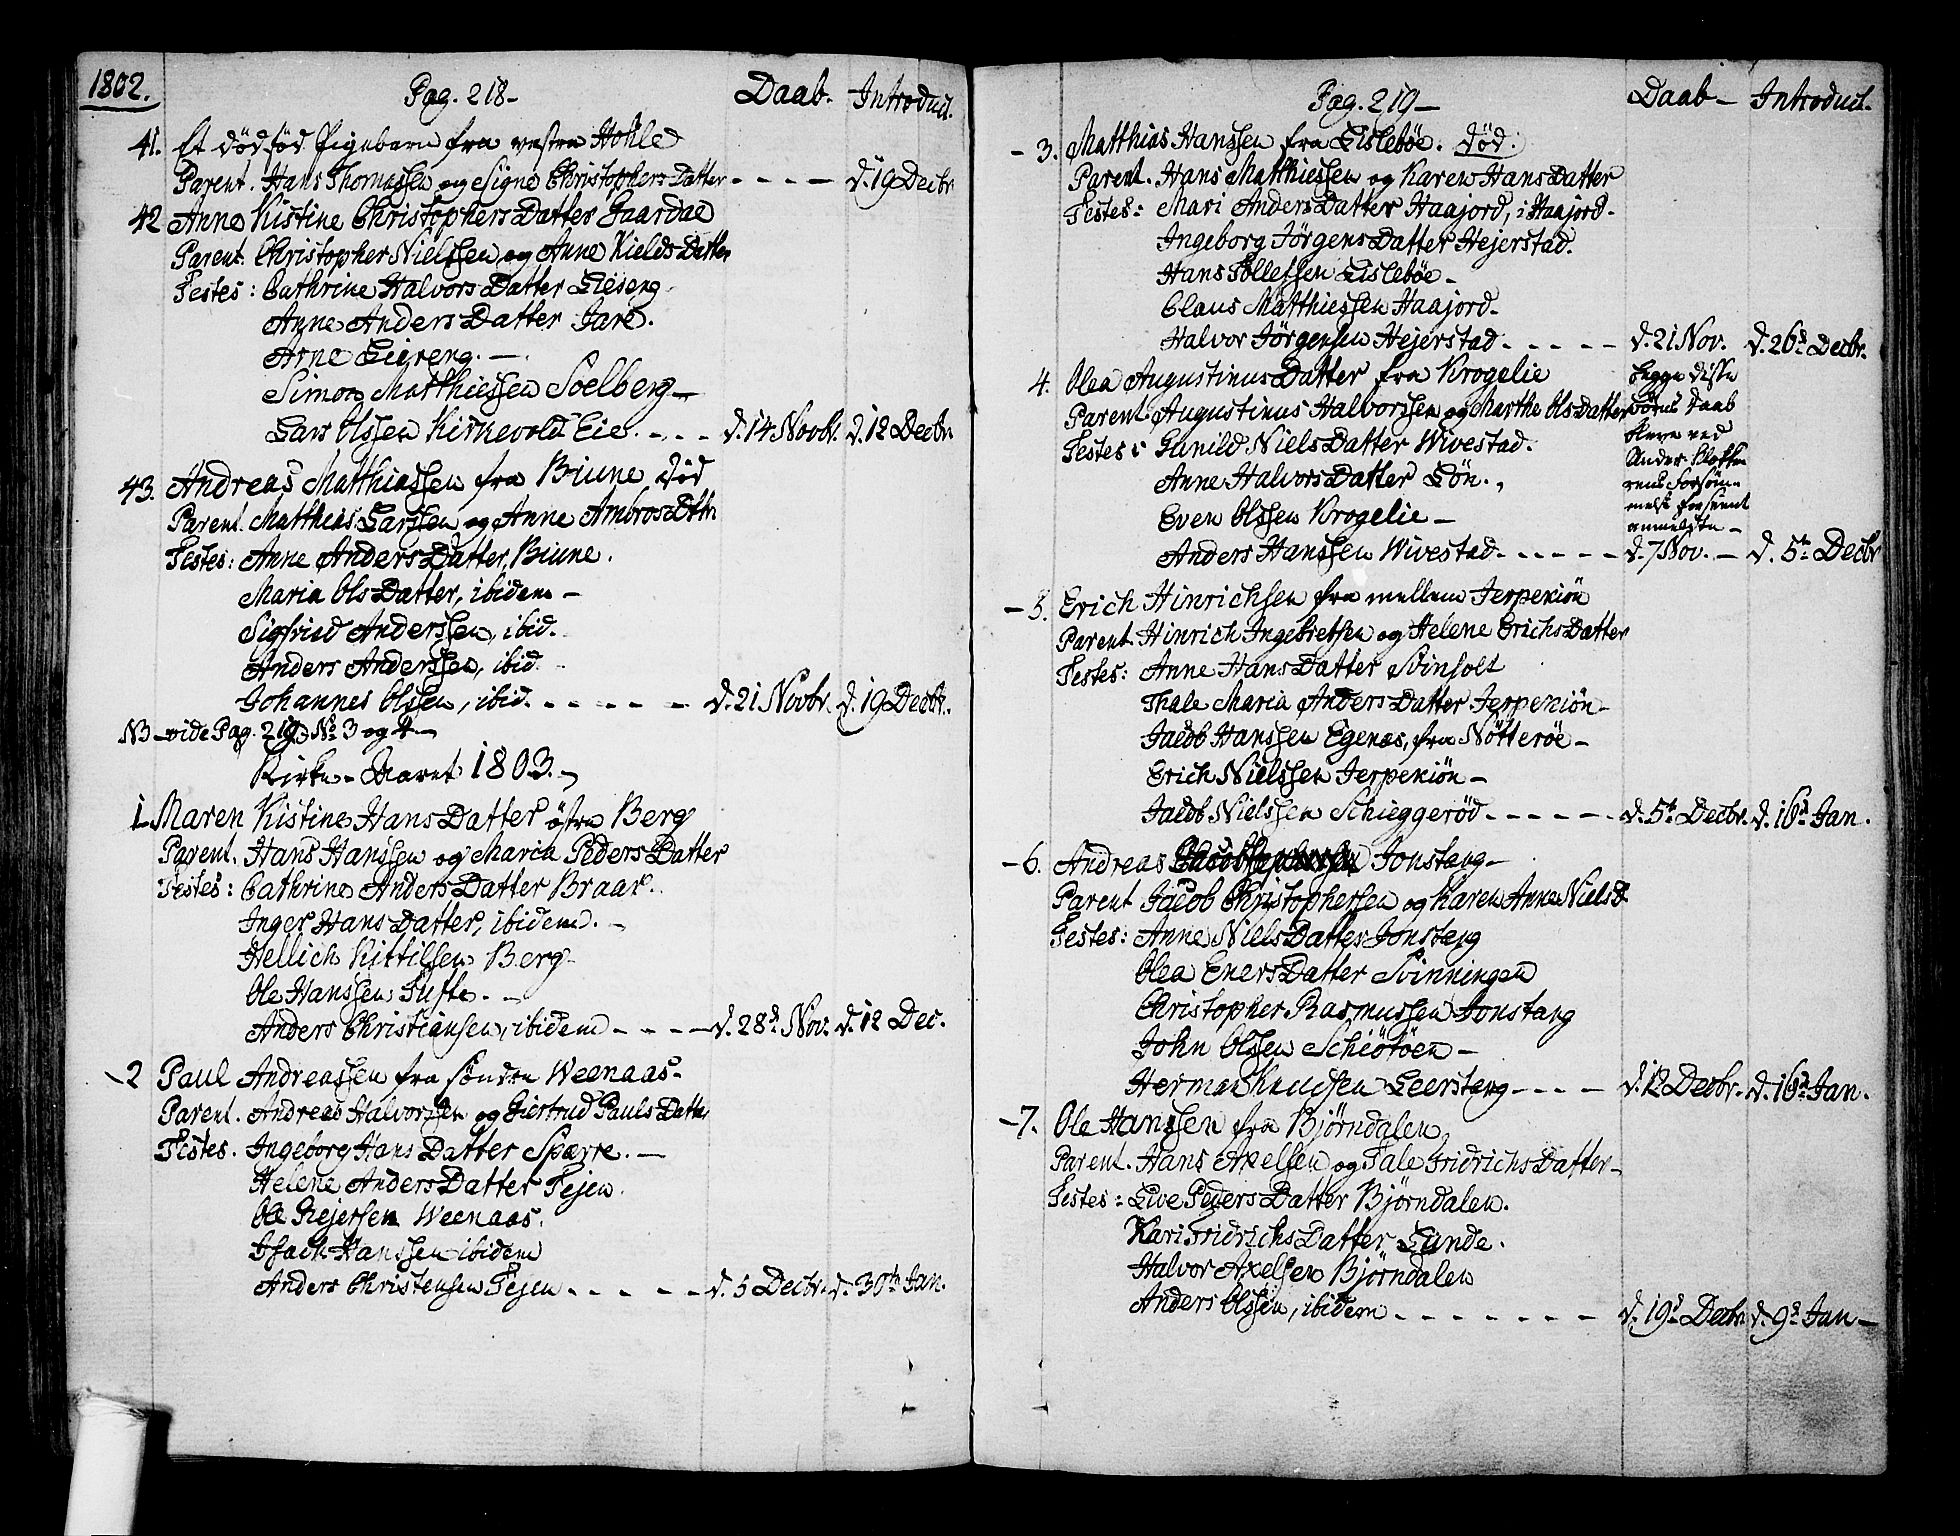 1802.
Pag. 218-
Daab.
Introduct.
41. Et dödfød Pigebarn fra vestre Hohle
Parent. Hans Thomassen og Signe ChristophersDatter - - - - d. 19 Decbr
42 Anne Kistine ChristophersDatter Gaardal
Parent. Christopher Nielssen og Anne KieldsDatter
Testes: Cathrine HalvorsDatter Liereng
Anne AndersDatter Jare.
Arne Liereng. -
Simon Matthiessen Soelberg -
Lars Olssen Kirkevold Eie. - - - d. 14 Novbr. d. 12 Decbr.
43. Andreas Matthiassen fra Biune død
Parent. Matthias Larssen og Anne AmbrosDttr
Testes: Anne AndersDatter Biune.
Maria OlsDatter, ibidem -
Sigfried Anderssen, ibid.
Anders Anderssen, ibid.
Johannes Olssen, ibid. - - - - - - d. 21 Novbr. d. 19 Decbr.
NB - vide Pag. 219, No 3 og 4 -
Kirke-Aaret 1803. -
1. Maren Kistine HansDatter östre Berg
Parent. Hans Hanssen og Maria PedersDatter
Testes: Cathrine AndersDatter Braar.
Inger HansDatter, ibidem. -
Hellich Kittilsen Berg
Ole Hanssen Tufte. -
Anders Christiansen, ibidem - - - - d. 28d Nov. d. 12 Dec.
- 2 Paul Andreassen fra söndre Weenaas -
Parent. Andreas Halvorssen og Giertrud PaulsDatter
Testes. Ingeborg HansDatter Spærre. -
Helene AndersDatter Tejen.
Ole Rejersen Weenaas.
Isach Hanssen ibidem
Anders Christensen Tejen - - - - - d. 5 Decbr. d. 30te Jan.
Pag. 219 -
Daab -
Introduct.
- 3. Matthias Hanssen fra Lislebøe. død.
Parent. Hans Matthiessen og Karen HansDatter
Testes: Mari AndersDatter Haajord, i Haajord.
Ingeborg JörgensDatter Hejerstad.
Hans Tollefssen Lislebøe -
Claus Matthiessen Haajord -
Halvor Jörgensen Hejerstad - - - - - d. 21 Nov. d. 26d Decbr.
4. Olea AugustinusDatter fra Krogelie
Parent. Augustinus Halvorssen og Marthe OlsDatter
Testes: Gunild NielsDatter Wivestad.
Anne HalvorsDatter Lön.
Even Olssen Krogelie -
Anders Hanssen Wivestad - - - - - d. 7 Nov. - d. 5te Decbr
begge disse
börns daab
bleve ved
Under-Klokke-
rens forsöm-
melse for seent
anmeldte -
- 5. Erich Hinrichsen fra mellem Jerpekiön
Parent. Hinrich Ingebretsen og Helene ErichsDatter
Testes: Anne HansDatter Svinsolt
Thale Maria AndersDatter Jerpekiön -
Jacob Hanssen Egenæs, fra Nötteröe -
Erich Nielssen Jerpekiön -
Jacob Nielssen Schieggeröd - - - - - d. 5te Decbr. d. 16d Jan.
- 6. Andreas Jonstang -
Parent Jacob Christophersen og Karen Anne NielsD
Testes: Anne NielsDatter Jonstang
Olea EnersDatter Svinningen
Christopher Rasmussen Jonstang
John Olssen Schiötöen -
Herman Knudsen Leerstang - - - - d. 12 Decbr. d. 16d Jan.
- 7. Ole Hanssen fra Björndalen
Parent. Hans Axelsen og Tale FridrichsDatter -
Testes: Live PedersDatter Björndalen.
Kari FridrichsDatter Lunde.
Halvor Axelsen Björndalen
Anders Olssen, ibidem - - - - - - - - d. 19d Decbr d. 9d Jan -